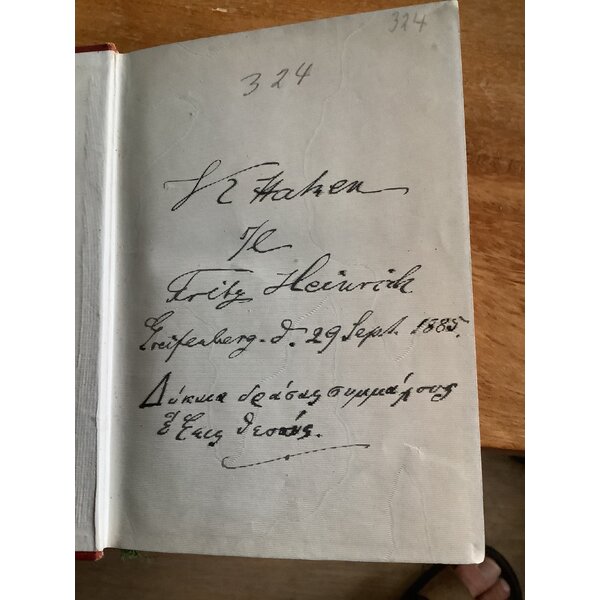 324
324
Haken
Fritz Heinrich
Greifenberg. d. 29 Sept. 1885.
Δίκαια δράσας συμμάχους
ἕξεις θεούς.